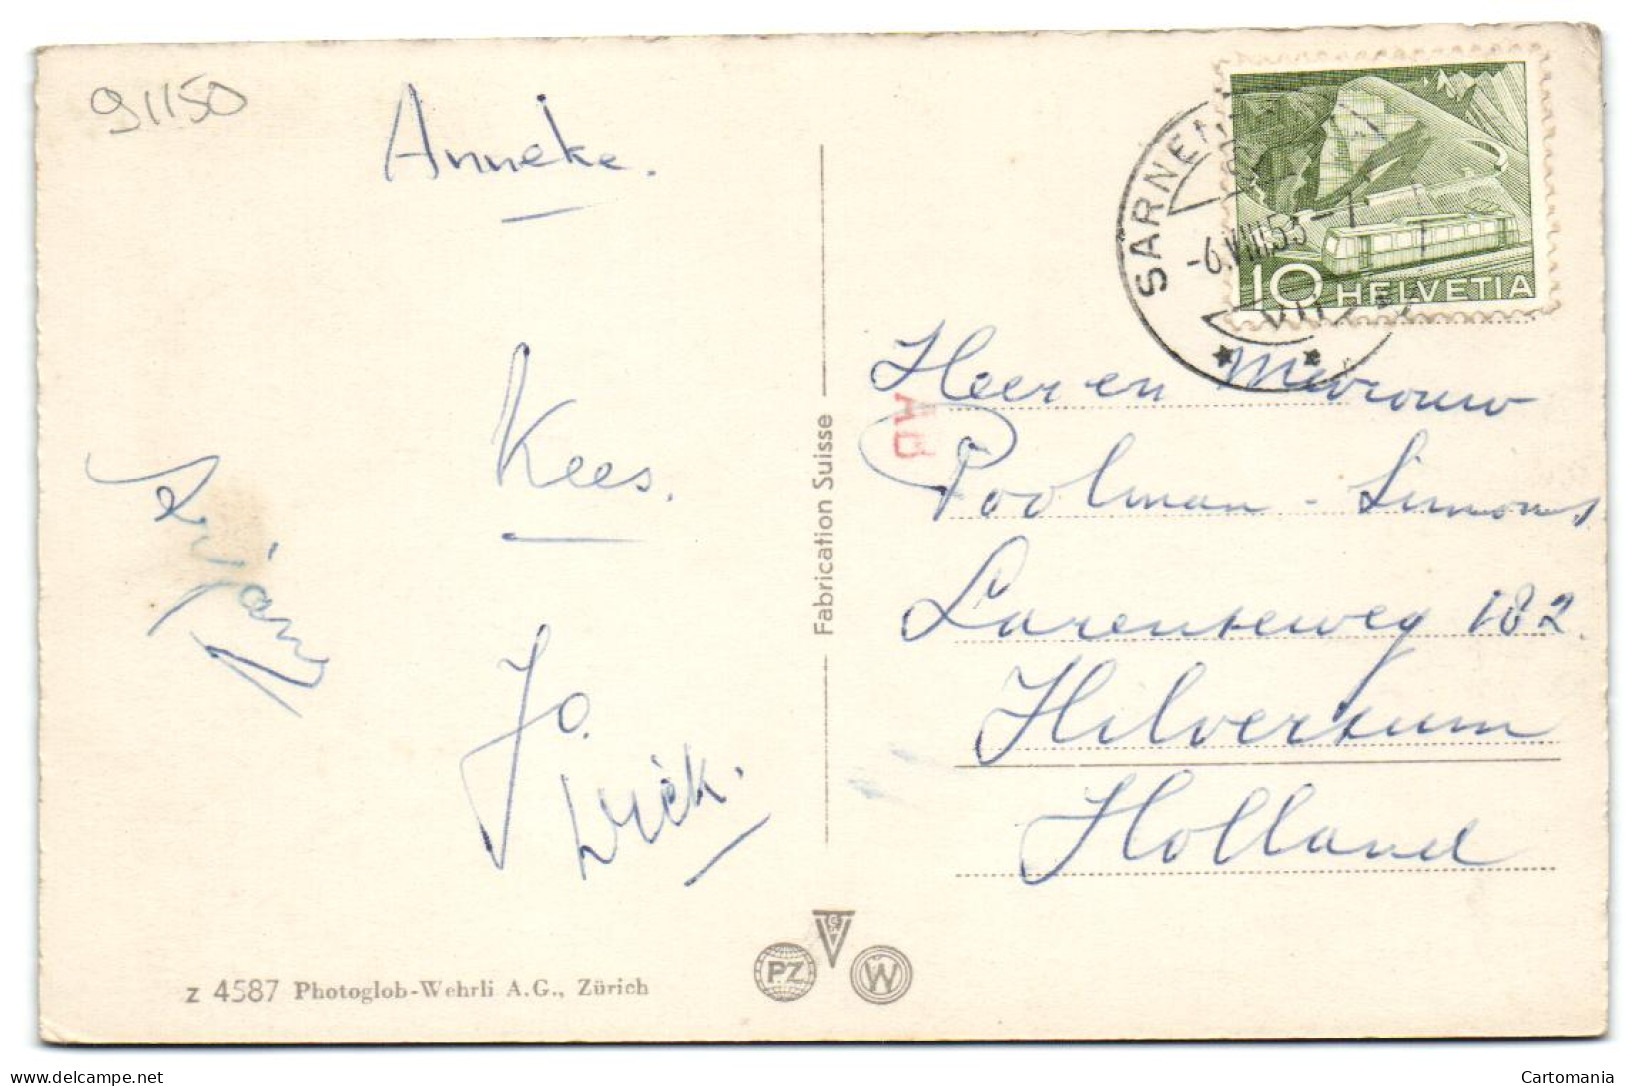 91150
Anneke.
Kees.
Jo.
Dick.
Fabrication Suisse
z 4587 Photoglob-Wehrli A.G., Zürich
PZ
W
SARNEN
-6.VIII.53-7
VII
10 HELVETIA
Heer en Mevrouw
Poolman - Simons
Larenseweg 182.
Hilversum
Holland
delcampe.net
Cartomania